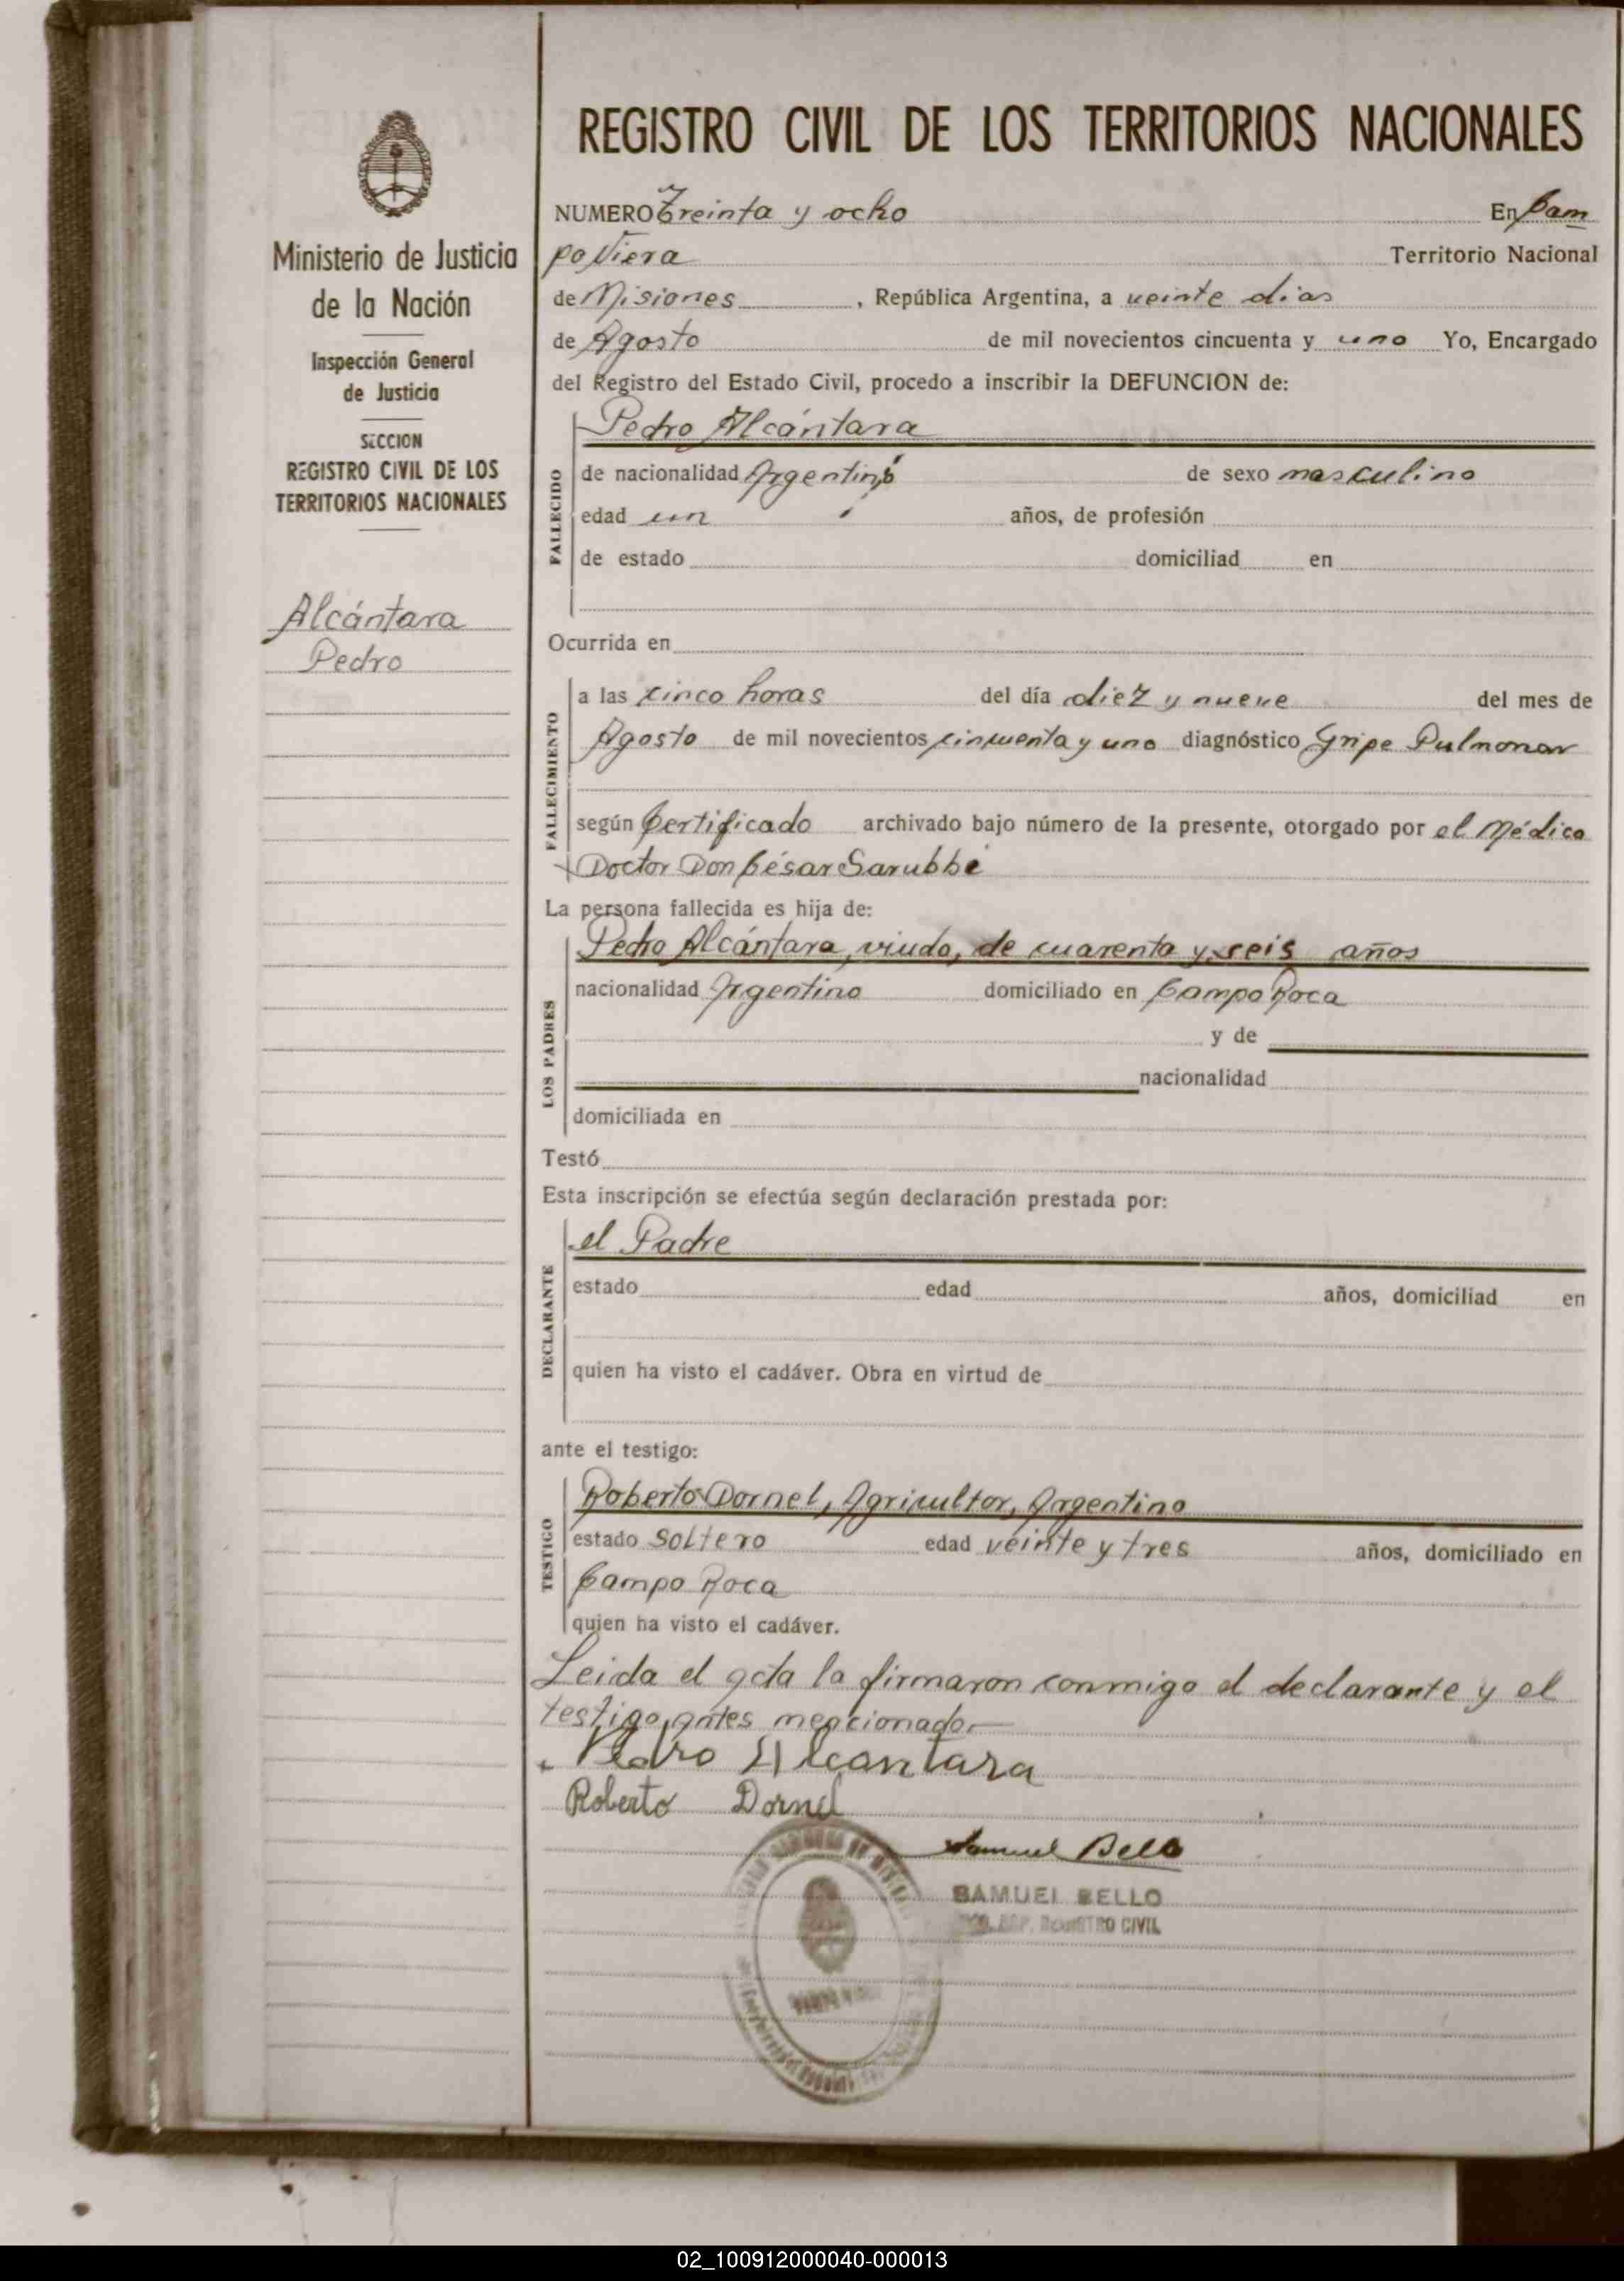 REGISTRO CIVIL DE LOS TERRITORIOS NACIONALES
Ministerio de Justicia
de la Nación
Inspección General
de Justicia
SECCION
REGISTRO CIVIL DE LOS
TERRITORIOS NACIONALES
Alcántara
Pedro
NUMERO Treinta y ocho En Cam
po Viera Territorio Nacional
de Misiones, República Argentina, a veinte dias
de Agosto de mil novecientos cincuenta y uno Yo, Encargado
del Registro del Estado Civil, procedo a inscribir la DEFUNCION de:
FALLECIDO
Pedro Alcántara
de nacionalidad Argentino de sexo masculino
edad un años, de profesión
de estado domiciliad en
Ocurrida en
FALLECIMIENTO
a las cinco horas del día diez y nueve del mes de
Agosto de mil novecientos cincuenta y uno diagnóstico Gripe Pulmonar
según Certificado archivado bajo número de la presente, otorgado por el Médico
Doctor Don César Sarubbi
La persona fallecida es hija de:
LOS PADRES
Pedro Alcántara, viudo, de cuarenta y seis años
nacionalidad Argentino domiciliado en Campo Roca
y de
nacionalidad
domiciliada en
Testó
Esta inscripción se efectúa según declaración prestada por:
DECLARANTE
el Padre
estado edad años, domiciliad en
quien ha visto el cadáver. Obra en virtud de
ante el testigo:
TESTIGO
Roberto Dornel, Agricultor, Argentino
estado Soltero edad veinte y tres años, domiciliado en
Campo Roca
quien ha visto el cadáver.
Leida el acta la firmaron conmigo el declarante y el
testigo antes mencionado.—
Pedro Alcantara
Roberto Dornel
Samuel Bello
SAMUEL BELLO
REGISTRO CIVIL
02_100912000040-000013